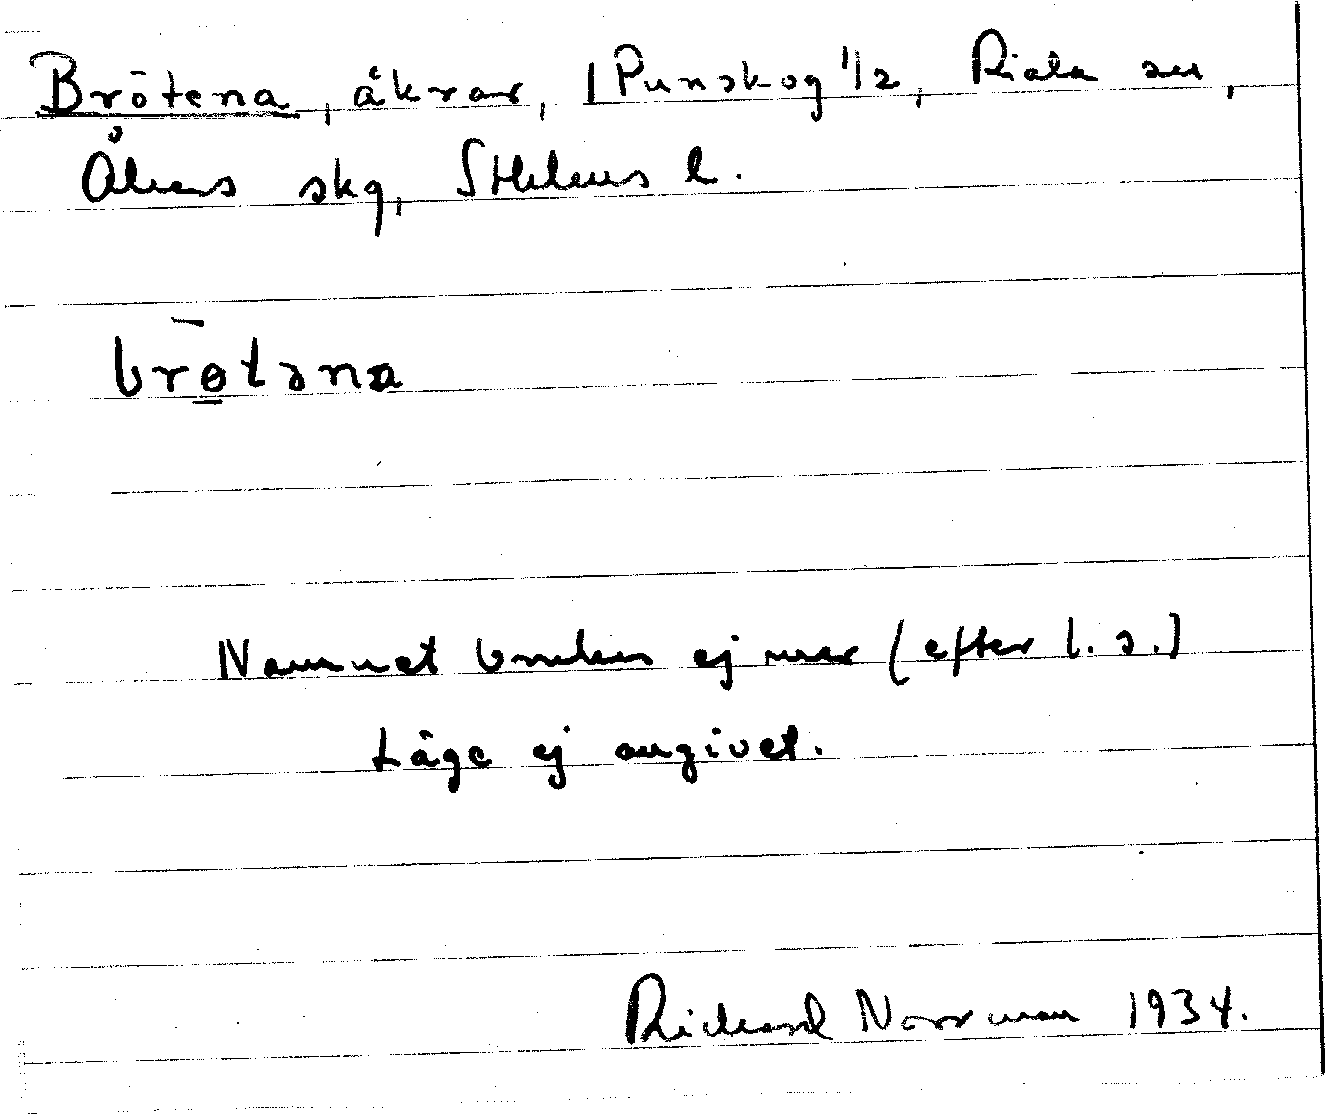 Brötena, åkrar, /Punskog 1/2, Riala sn,
Åkers skg, Sthlms l.
brø̱̄təna
Namnet brukas ej mer (efter l. s.)
Läge ej angivet.
Richard Norrman 1934.